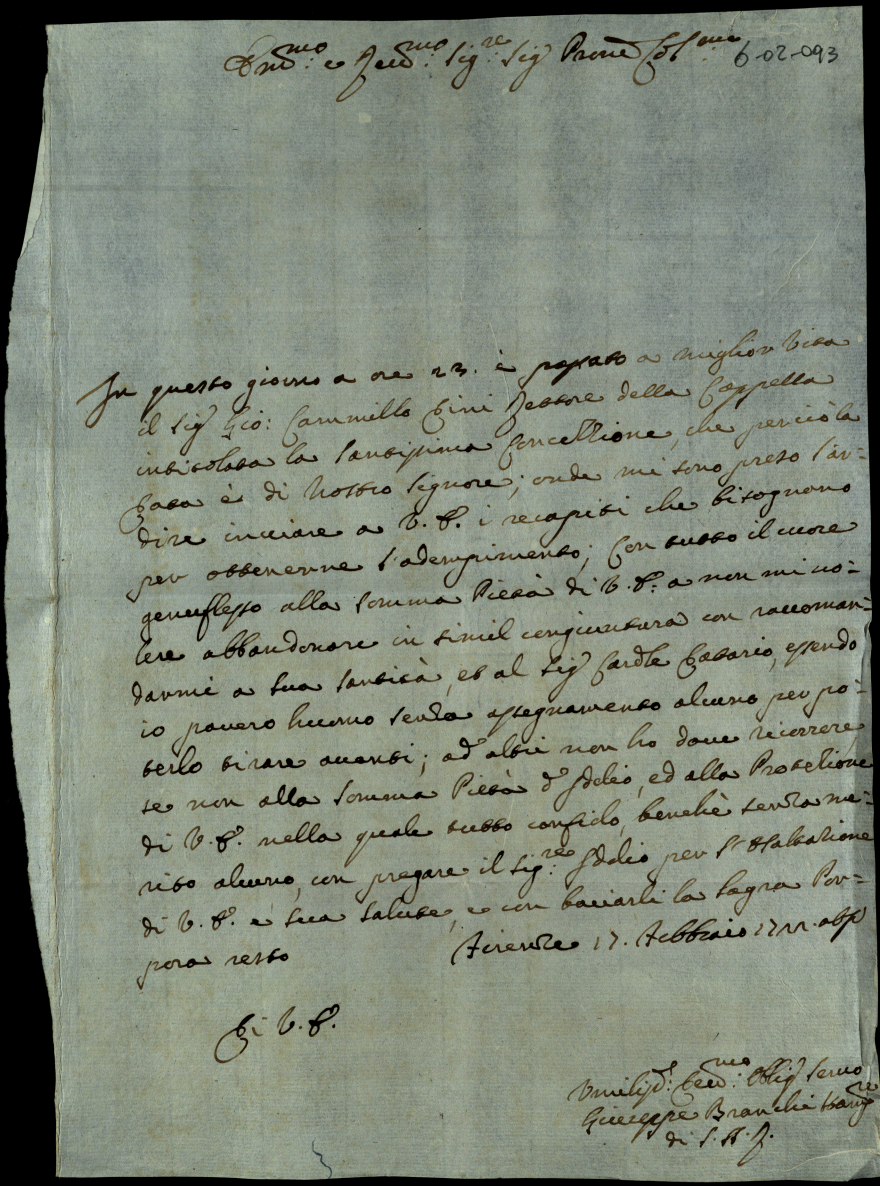 Em̃mo: e Reu.mo: Sig.re: Sig.r Prone Col.mo
6-02-093
In questo giorno a ore 23. è passato a miglior Vita
il Sig.r Gio: Cammillo Dini Rettore della Cappella
intitolata la Santissima Concettione, che perciò la
Data è di Nostro Signore; onde mi sono preso l'ar=
dire inuiare a V. E. i recapiti che bisognano
per ottenerne l'adempimento; Con tutto il cuore
genuflesso alla somma Pietà di V. E: a non mi uo=
lere abbandonare in simil congiuntura con raccoman=
darmi a Sua Santità, et al Sig.r Cardle Datario, essendo
io pouero huomo senza assegnamento alcuno per po=
terlo tirare auanti; ad altri non ho doue ricorrere
se non alla somma Pietà d' Iddio, ed alla Protetione
di V. E. nella quale tutto confido, benchè senza me=
rito alcuno, con pregare il Sig.re: Iddio per l' Esaltatione
di V. E. e sua Salute, e con baciarli la Sagra Por=
pora resto
Firenze 17. Febbraio 1722. ab Inc.
Di V. E.
Umiliss: Deu.mo: Obblig Seruo
Giuseppe Branchi
di S. A. R.